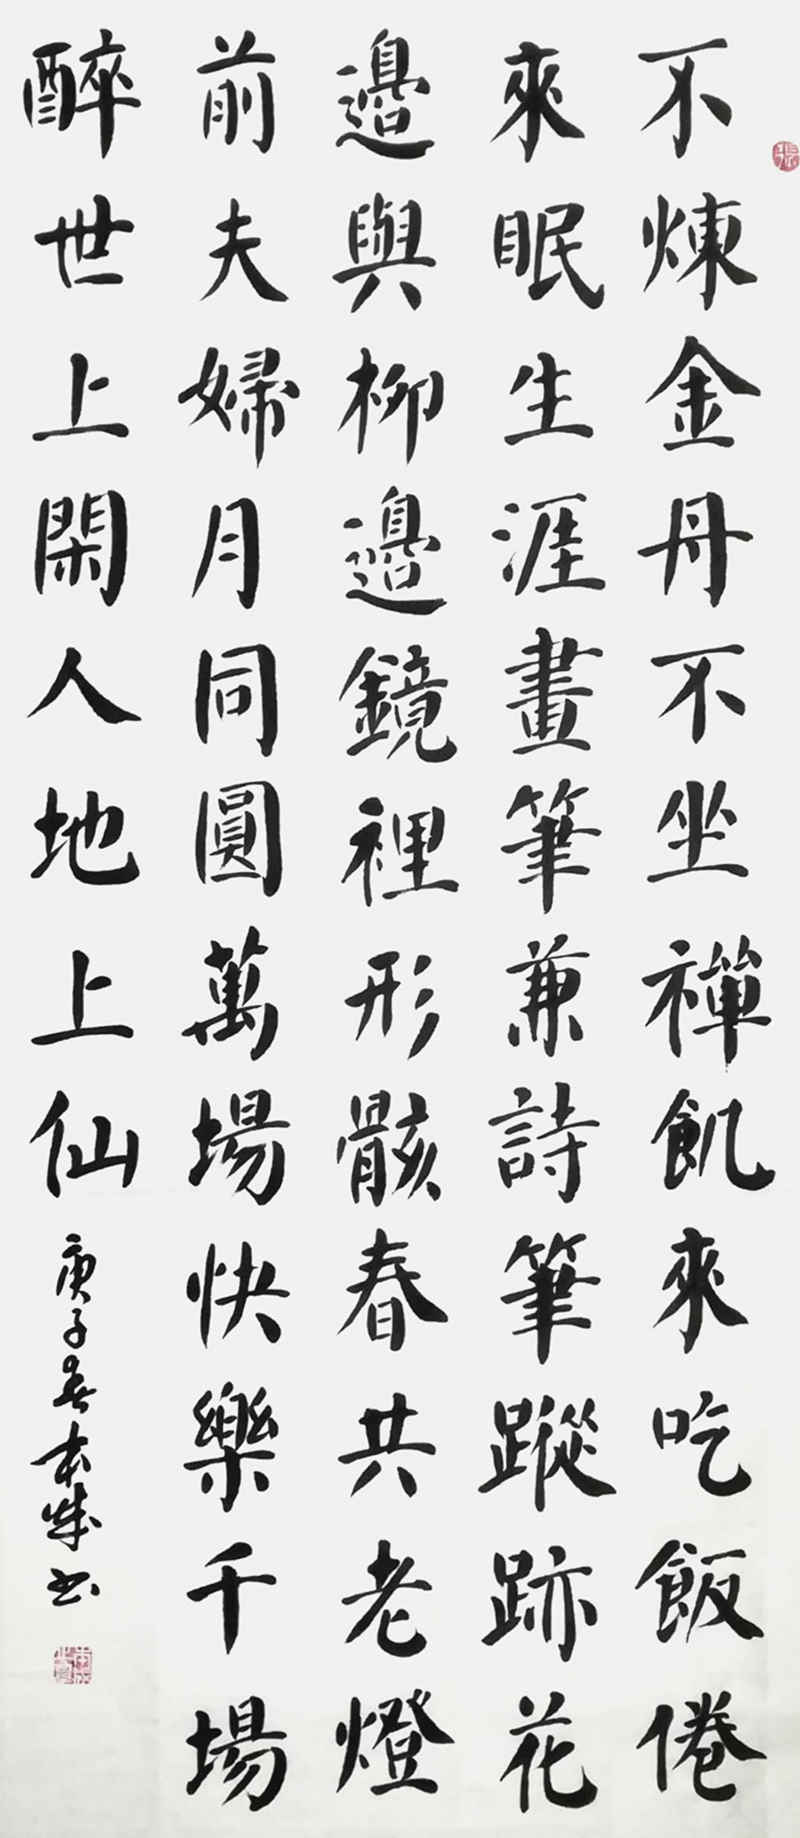 不煉金丹不坐禪飢來吃飯倦
來眠生涯畫筆兼詩筆蹤跡花
邊與柳邊鏡裡形骸春共老燈
前夫婦月同圓萬場快樂千場
醉世上閑人地上仙
庚子春本成书
張